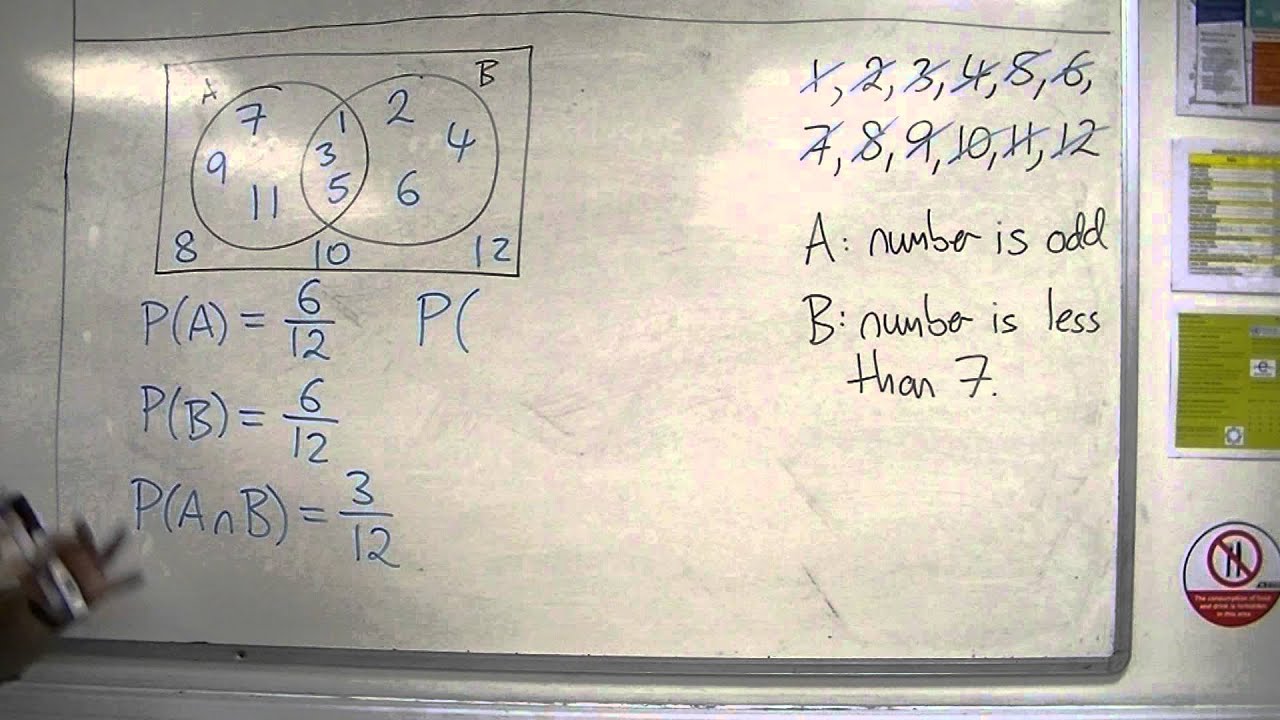 A
B
7
1
2
9
3
4
11
5
6
8
10
12
P(A) = 6/12
P(
P(B) = 6/12
P(A∩B) = 3/12
1, 2, 3, 4, 5, 6,
7, 8, 9, 10, 11, 12
A: number is odd
B: number is less
than 7.
The consumption of food
and drink is forbidden
in this area